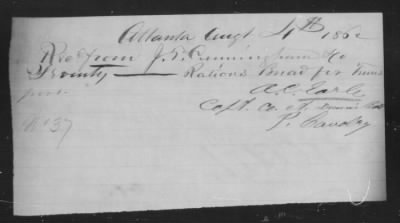 Atlanta Augt 4th 1862
Recd from J. T. Cunningham &Co
Twenty — Rations Bread for Trans
port.
A. C. Earle
Capt. Co. A.
P. Cavalry
No 37